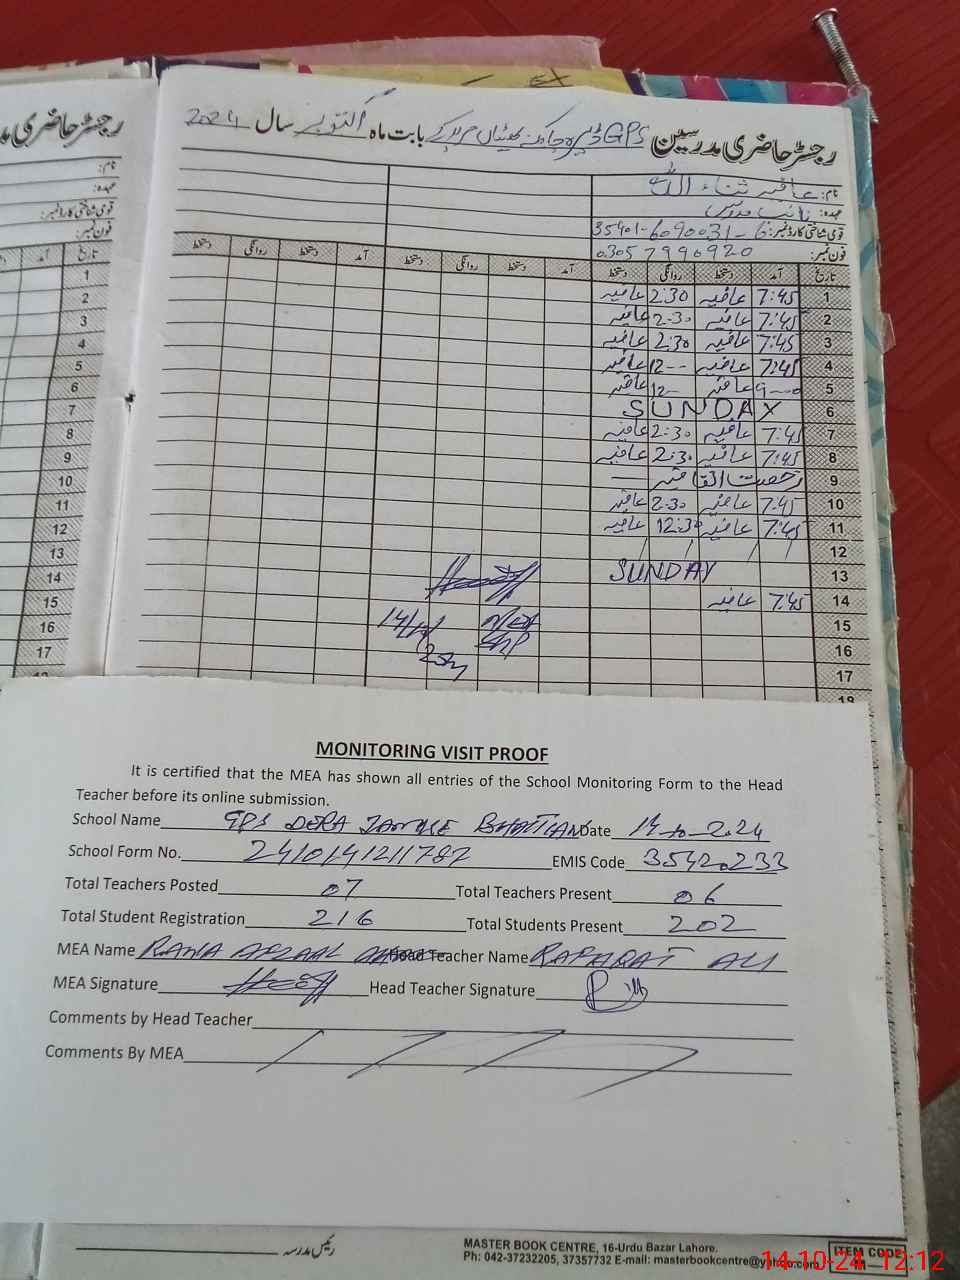 رجسٹر حاضری مدرسین GPS ڈیرہ جاموکے بھٹیاں مریدکے بابت ماہ اکتوبر سال 2024
رجسٹر حاضری مدر
نام: عافیہ ثناء اللہ
عہدہ: نائب مدرس
قومی شناختی کارڈ نمبر: 35401-6090031-6
فون نمبر: 03057990920
نام:
عہدہ:
قومی شناختی کارڈ نمبر:
فون نمبر:
تاریخ آمد دستخط روانگی دستخط آمد دستخط روانگی دستخط آمد دستخط روانگی دستخط
1 7:45 عافیہ 2:30 عافیہ
2 7:45 عافیہ 2:30 عافیہ
3 7:45 عافیہ 2:30 عافیہ
4 7:45 عافیہ 12-- عافیہ
5 9--0 عافیہ 12-- عافیہ
6 SUNDAY
7 7:45 عافیہ 2:30 عافیہ
8 7:45 عافیہ 2:30 عافیہ
9 رخصت اتفاقیہ
10 7:45 عافیہ 2:30 عافیہ
11 7:45 عافیہ 12:30 عافیہ
12
13 SUNDAY
14 7:45 عافیہ
15
16
17
18
تاریخ آمد
1
2
3
4
5
6
7
8
9
10
11
12
13
14
15
16
17
MEA
SKP
14/10/
MONITORING VISIT PROOF
It is certified that the MEA has shown all entries of the School Monitoring Form to the Head
Teacher before its online submission.
School Name GPS DERA JAMOKE BHATTIAN Date 14-10-2024
School Form No. 2410141211782 EMIS Code 35420233
Total Teachers Posted 07 Total Teachers Present 06
Total Student Registration 216 Total Students Present 202
MEA Name RANA AFZAAL Head Teacher Name RAFAQAT ALI
MEA Signature Head Teacher Signature
Comments by Head Teacher
Comments By MEA
رئیس مدرسہ
MASTER BOOK CENTRE, 16-Urdu Bazar Lahore.
Ph: 042-37232205, 37357732 E-mail: masterbookcentre@yahoo.com
ITEM CODE
14.10-24 12:12